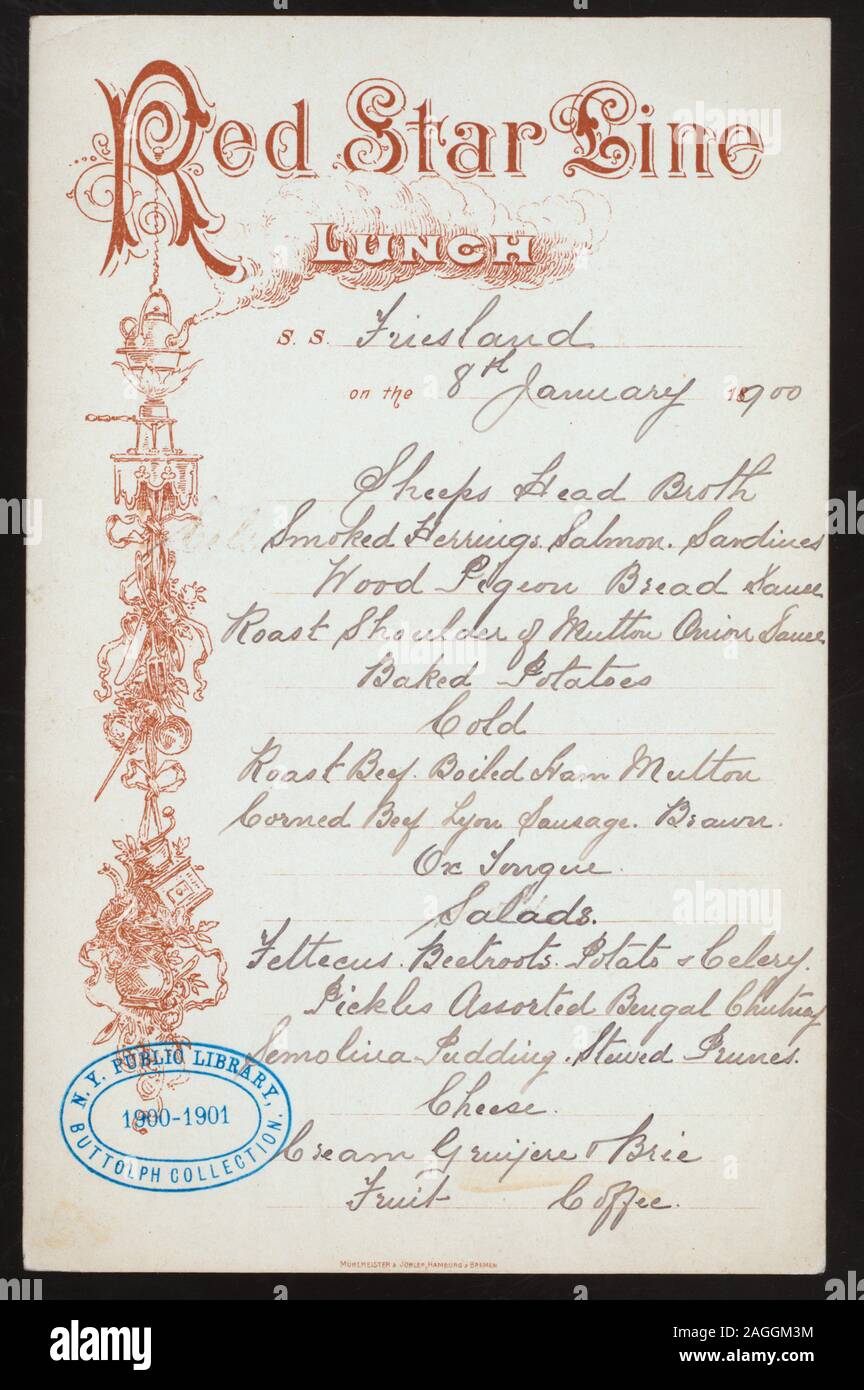 Red Star Line
LUNCH
S. S. Friesland
on the 8th January 1900
Sheeps Head Broth
Smoked Herrings. Salmon. Sardines
Wood Pigeon Bread Sauce
Roast Shoulder of Mutton Onion Sauce
Baked Potatoes
Cold
Roast Beef. Boiled Ham Mutton
Corned Beef Lyon Sausage. Brawn.
Ox Tongue.
Salads.
Fettecus. Beetroots. Potato & Celery.
Pickles Assorted Bengal Chutney
Semolina Pudding. Stewed Prunes.
Cheese.
Cream Gruijere & Brie
Fruit Coffee.
N. Y. PUBLIC LIBRARY,
1900-1901
BUTTOLPH COLLECTION.
MÜHLMEISTER & JOHLER, HAMBURG & BREMEN
alamy
Image ID: 2AGGM3M
www.alamy.com